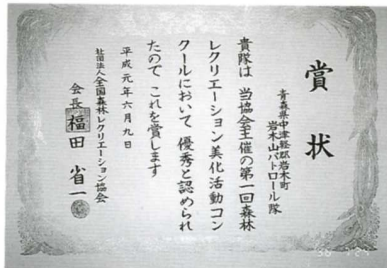 賞状
青森県中津軽郡岩木町
岩木山パトロール隊
貴隊は 当協会主催の第一回森林
レクリエーション美化活動コン
クールにおいて 優秀と認められ
たので これを賞します
平成元年六月九日
社団法人全国森林レクリエーション協会
会長 福田省一